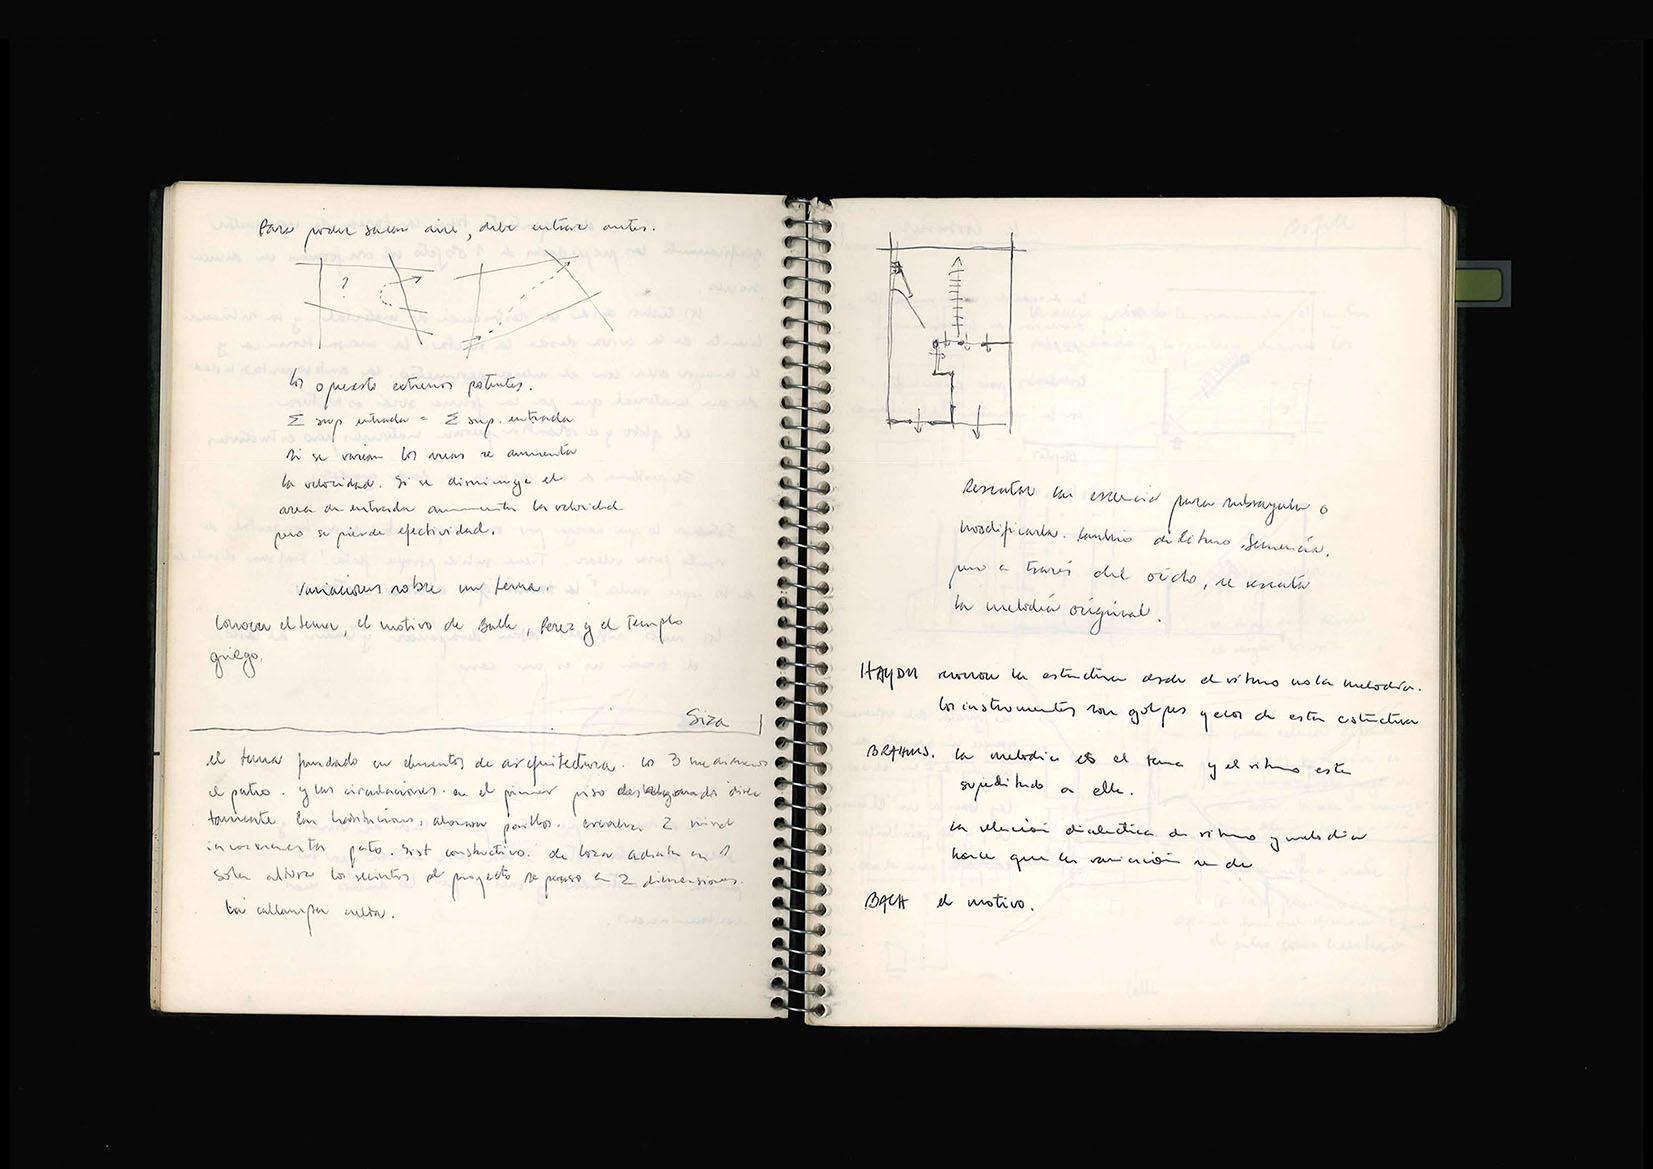 Para poder sacar aire, debe entrar antes.
?
los opuesto extremos potentes.
Σ sup entrada = Σ sup. entrada
Si se varian los areas se aumenta
la velocidad. Si se disminuye el
area de entrada aumenta la velocidad
pero se pierde efectividad.
Variaciones sobre un tema.
Conocer el tema, el motivo de Bach, Perez y el templo
griego.
Siza
el tema fundado en elementos de arquitectura. los 3
el patio. y las circulaciones. en el primer piso
las habitaciones, ahorran pasillos. 2 nivel
patio. Sist constructivo. de
los recintos el proyecto se penso en 2 dimensiones.
la callampa culta.
Rescatar la esencia para subrayarla o
modificarla. Cambio de ritmo
pero a través del oido, se rescata
la melodía original.
HAYDN la estructura desde el ritmo no la melodía.
los instrumentos son golpes y ecos de esta estructura
BRAHMS. la melodia es el tema y el ritmo esta
supeditado a ella.
la relación dialectica de ritmo y melodia
hace que la variación se de
BACH el motivo.